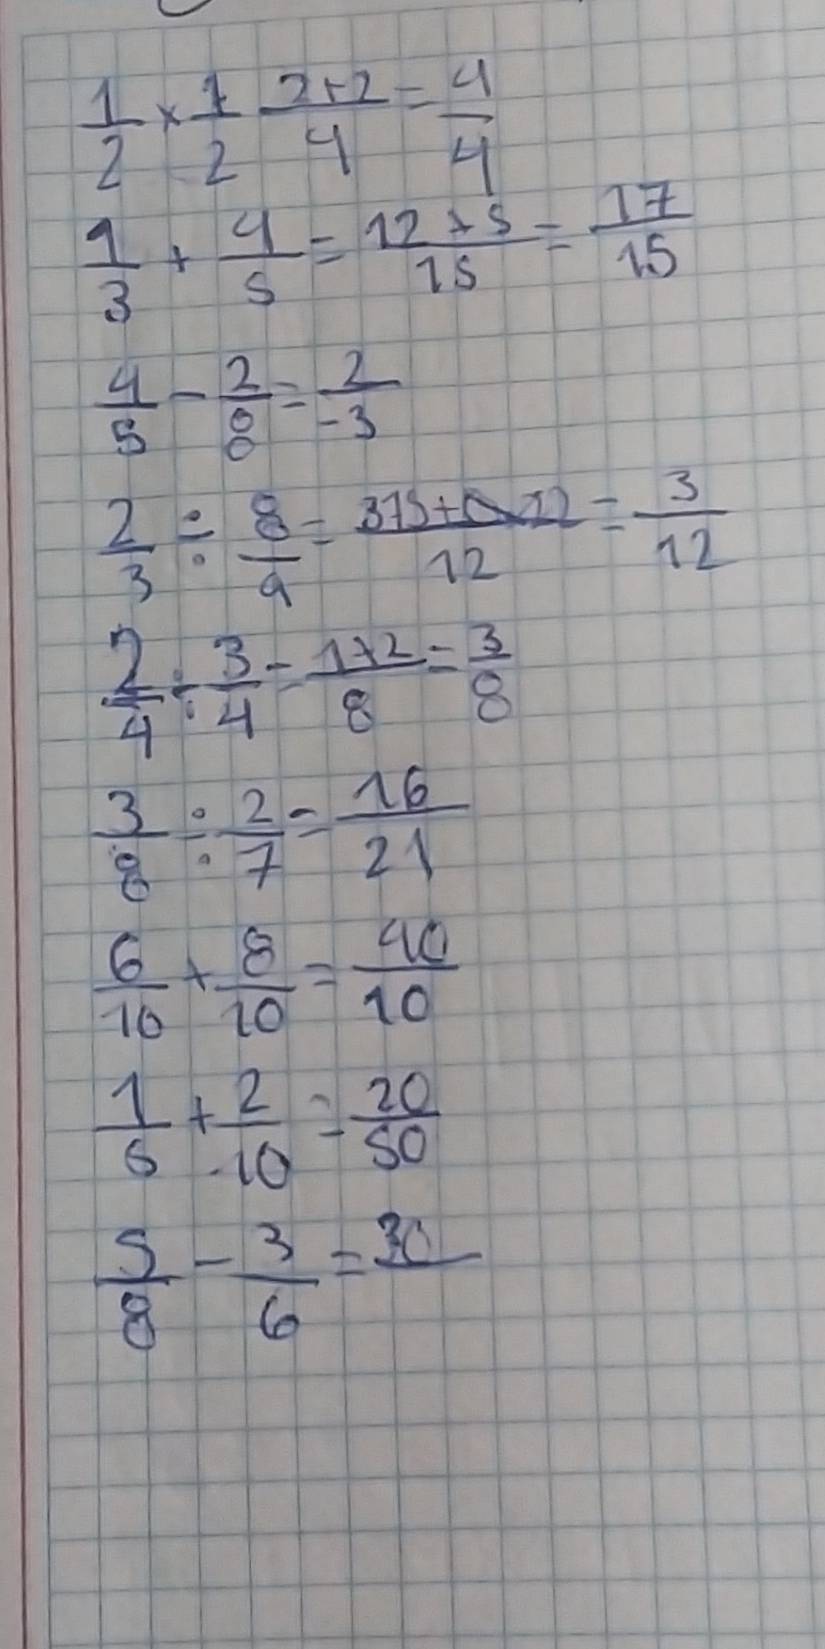 1/2 × 1/2 2+2/4 = 4/4
1/3 + 4/5 = 12+5/15 = 17/15
4/5 - 2/8 = 2/-3
2/3 ÷ 8/9 = /12 = 3/12
2/4 ÷ 3/4 = 1+2/8 = 3/8
3/8 ÷ 2/7 = 16/21
6/10 + 8/10 = 40/10
1/6 + 2/10 = 20/50
5/8 - 3/6 = 30/